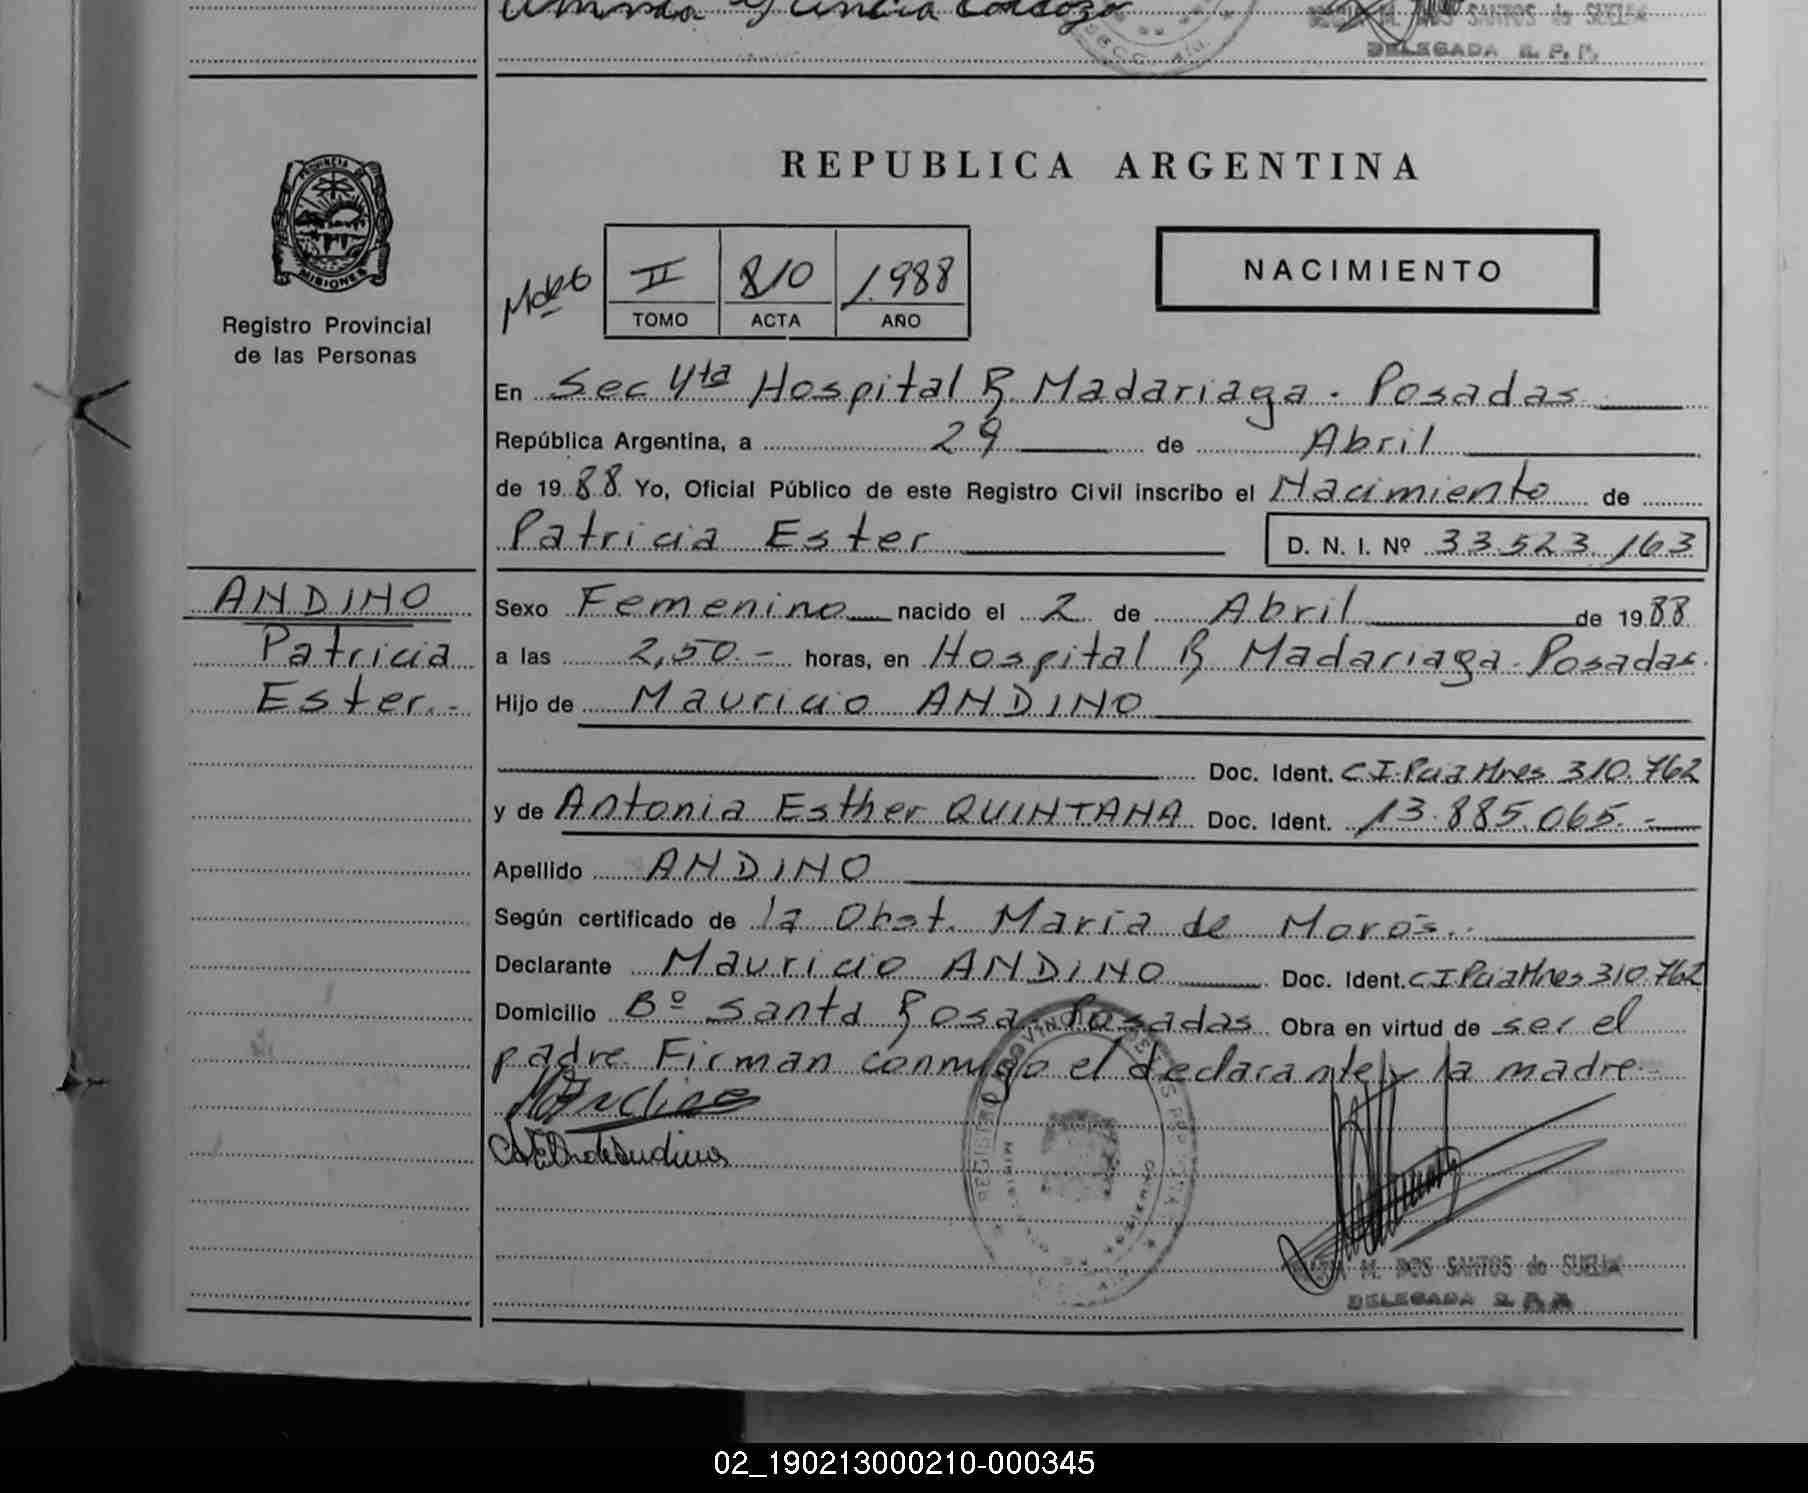 DELEGADA R. P. P.
PROVINCIA DE
MISIONES
Registro Provincial
de las Personas
REPUBLICA ARGENTINA
II 810 1988
TOMO ACTA AÑO
NACIMIENTO
En Sec 4ta Hospital R. Madariaga. Posadas
República Argentina, a 29 de Abril
de 1988 Yo, Oficial Público de este Registro Civil inscribo el Nacimiento de
Patricia Ester D. N. I. Nº 33.523.163
ANDINO
Patricia
Ester.-
Sexo Femenino nacido el 2 de Abril de 1988
a las 2,50.- horas, en Hospital R Madariaga. Posadas.
Hijo de Mauricio ANDINO
Doc. Ident. C.I. Pcia Mnes 310.762
y de Antonia Esther QUINTANA Doc. Ident. 13.885.065.-
Apellido ANDINO
Según certificado de la Obst. María de Moros.
Declarante Mauricio ANDINO Doc. Ident. C I Pcia Mnes 310.762
Domicilio Bº Santa Rosa. Posadas Obra en virtud de ser el
padre. Firman conmigo el declarante y la madre.-
M. DOS SANTOS de SUELA
DELEGADA R. P. P.
02_190213000210-000345